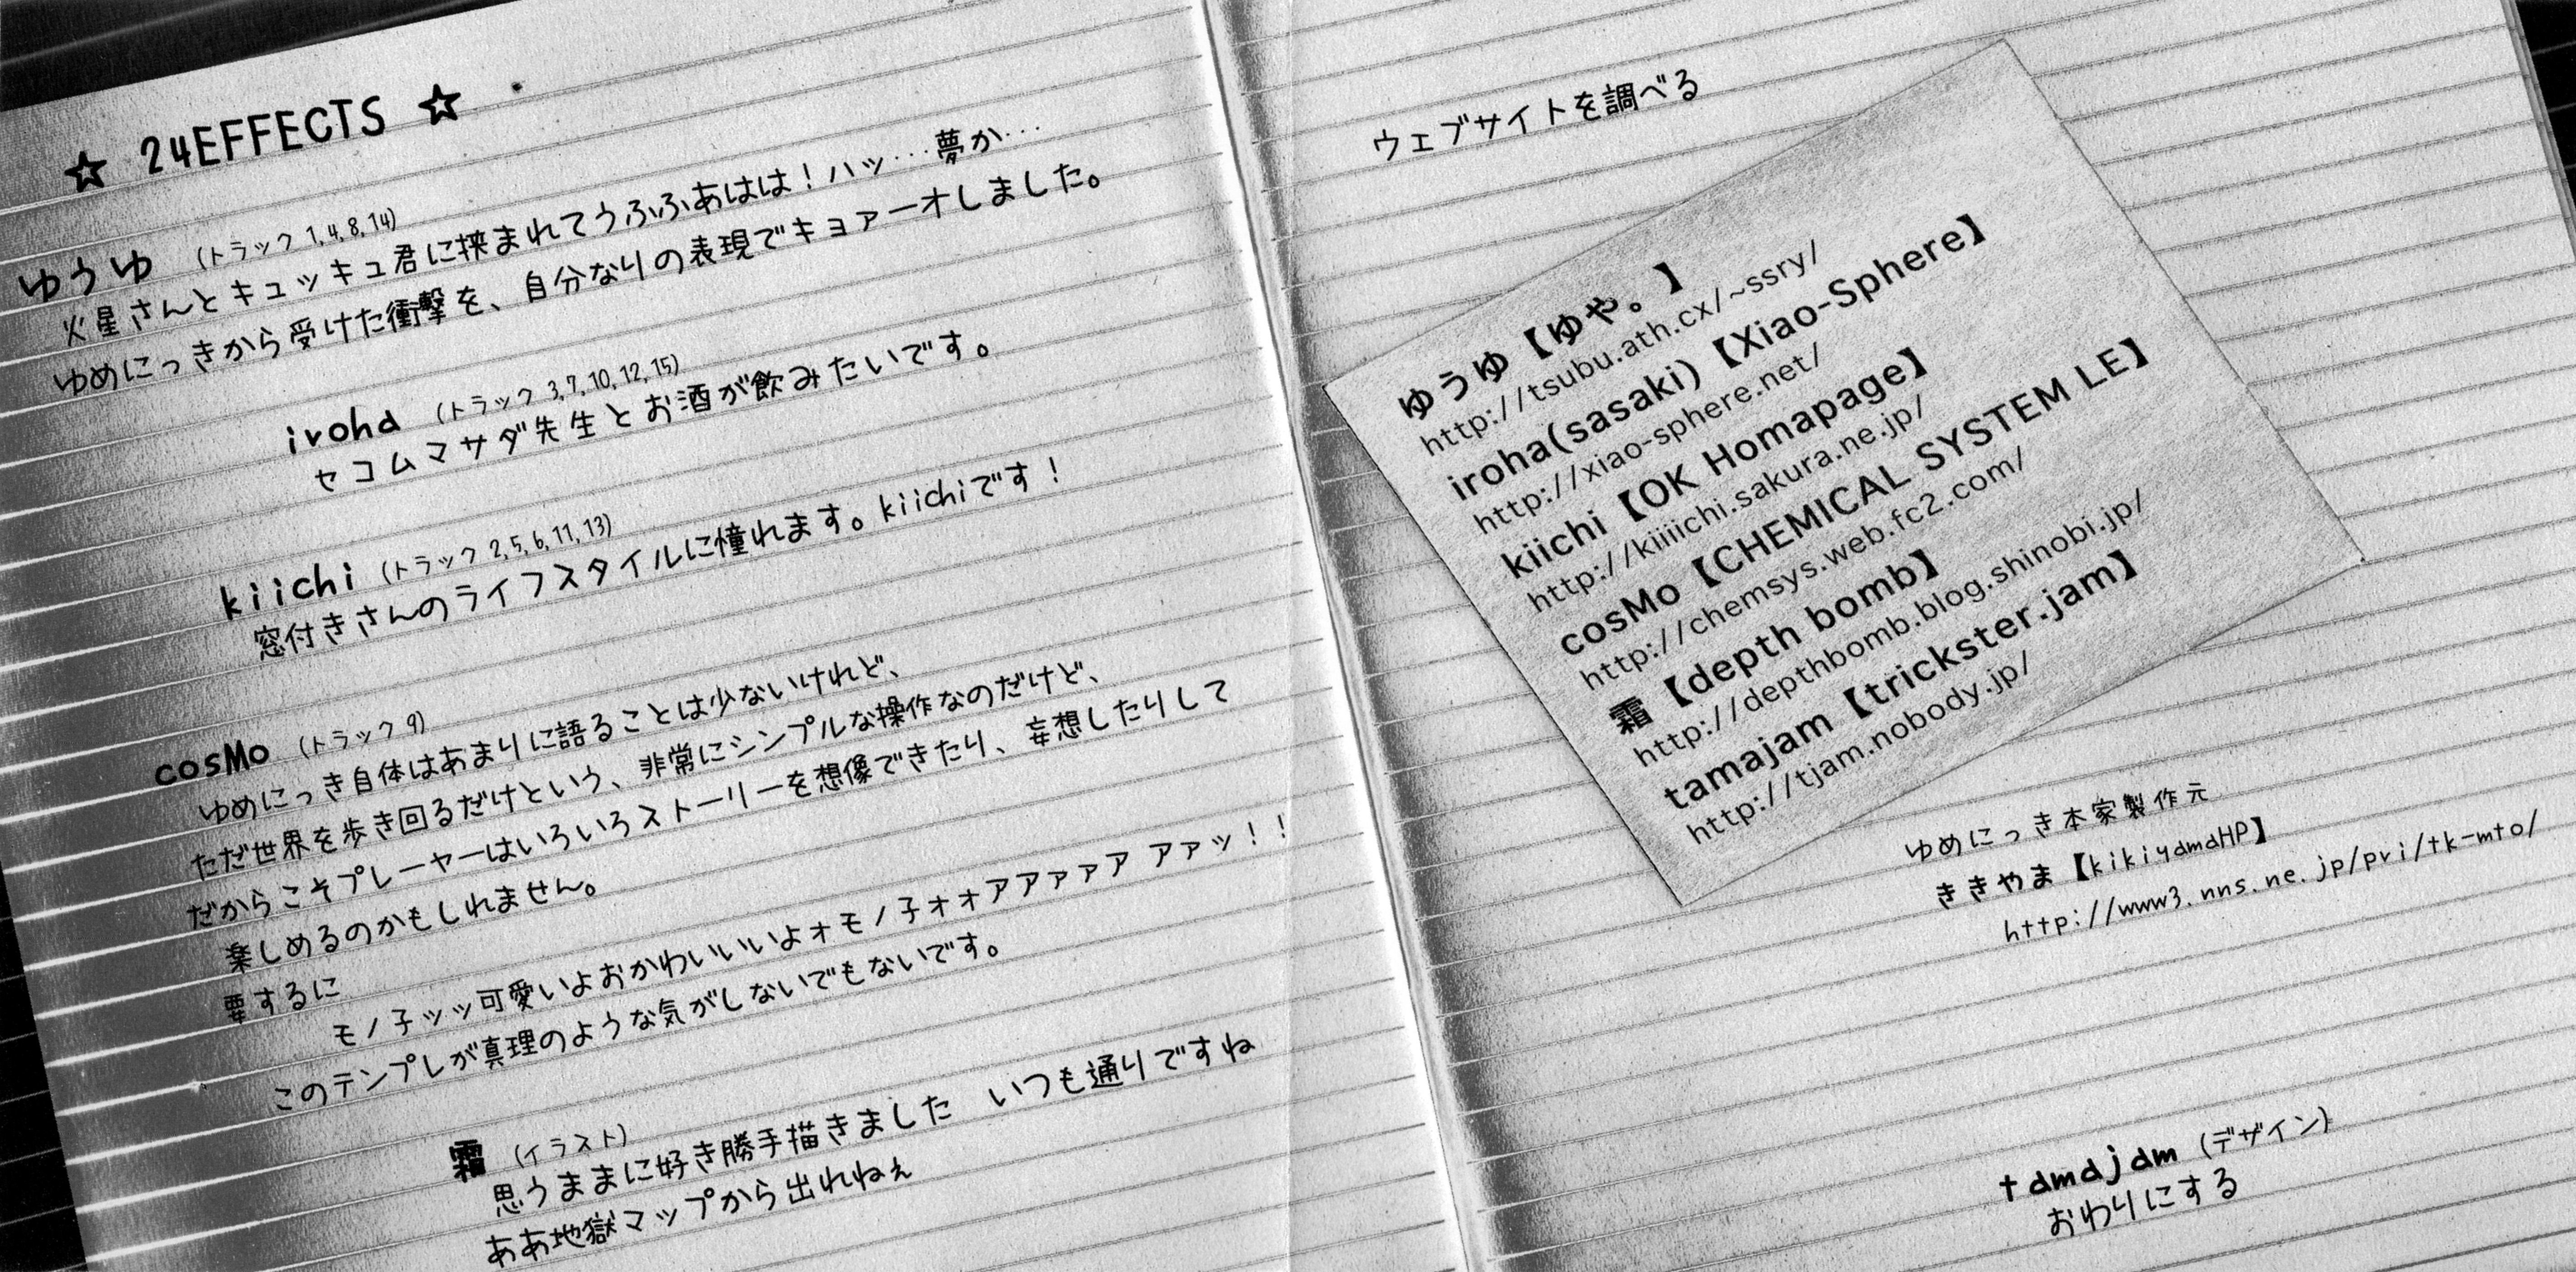 ☆ 24EFFECTS ☆
ゆうゆ (トラック 1,4,8,14)
火星さんとキュッキュ君に挟まれてうふふあはは！ハッ…夢か…
ゆめにっきから受けた衝撃を、自分なりの表現でキョァーオしました。
iroha (トラック 3,7,10,12,15)
セコムマサダ先生とお酒が飲みたいです。
kiichi (トラック 2,5,6,11,13)
窓付きさんのライフスタイルに憧れます。kiichiです！
cosMo (トラック 9)
ゆめにっき自体はあまりに語ることは少ないけれど、
ただ世界を歩き回るだけという、非常にシンプルな操作なのだけど、
だからこそプレーヤーはいろいろストーリーを想像できたり、妄想したりして
楽しめるのかもしれません。
要するに
モノ子ッッ可愛いよおかわいいいよォモノ子ォォアアァァア アァッ！！
このテンプレが真理のような気がしないでもないです。
霜 (イラスト)
思うままに好き勝手描きました　いつも通りですね
ああ地獄マップから出れねぇ
ウェブサイトを調べる
ゆうゆ【ゆや。】
http://tsubu.ath.cx/~ssry/
iroha(sasaki)【Xiao-Sphere】
http://xiao-sphere.net/
kiichi【OK Homapage】
http://kiiiichi.sakura.ne.jp/
cosMo【CHEMICAL SYSTEM LE】
http://chemsys.web.fc2.com/
霜【depth bomb】
http://depthbomb.blog.shinobi.jp/
tamajam【trickster.jam】
http://tjam.nobody.jp/
ゆめにっき本家製作元
ききやま【kikiyamaHP】
http://www3.nns.ne.jp/pri/tk-mto/
tamajam (デザイン)
おわりにする